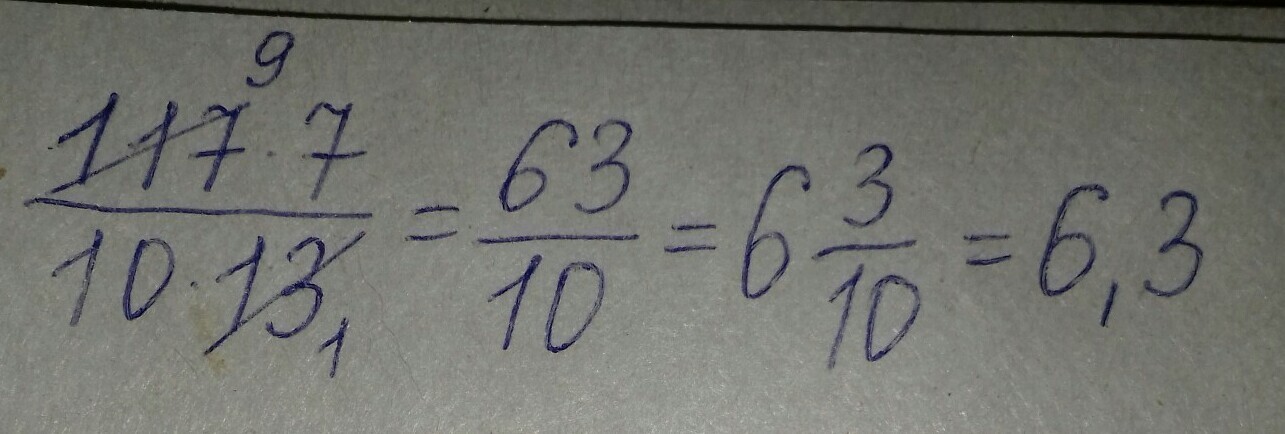 9
117·7/10·13 1 = 63/10 = 6 3/10 = 6,3